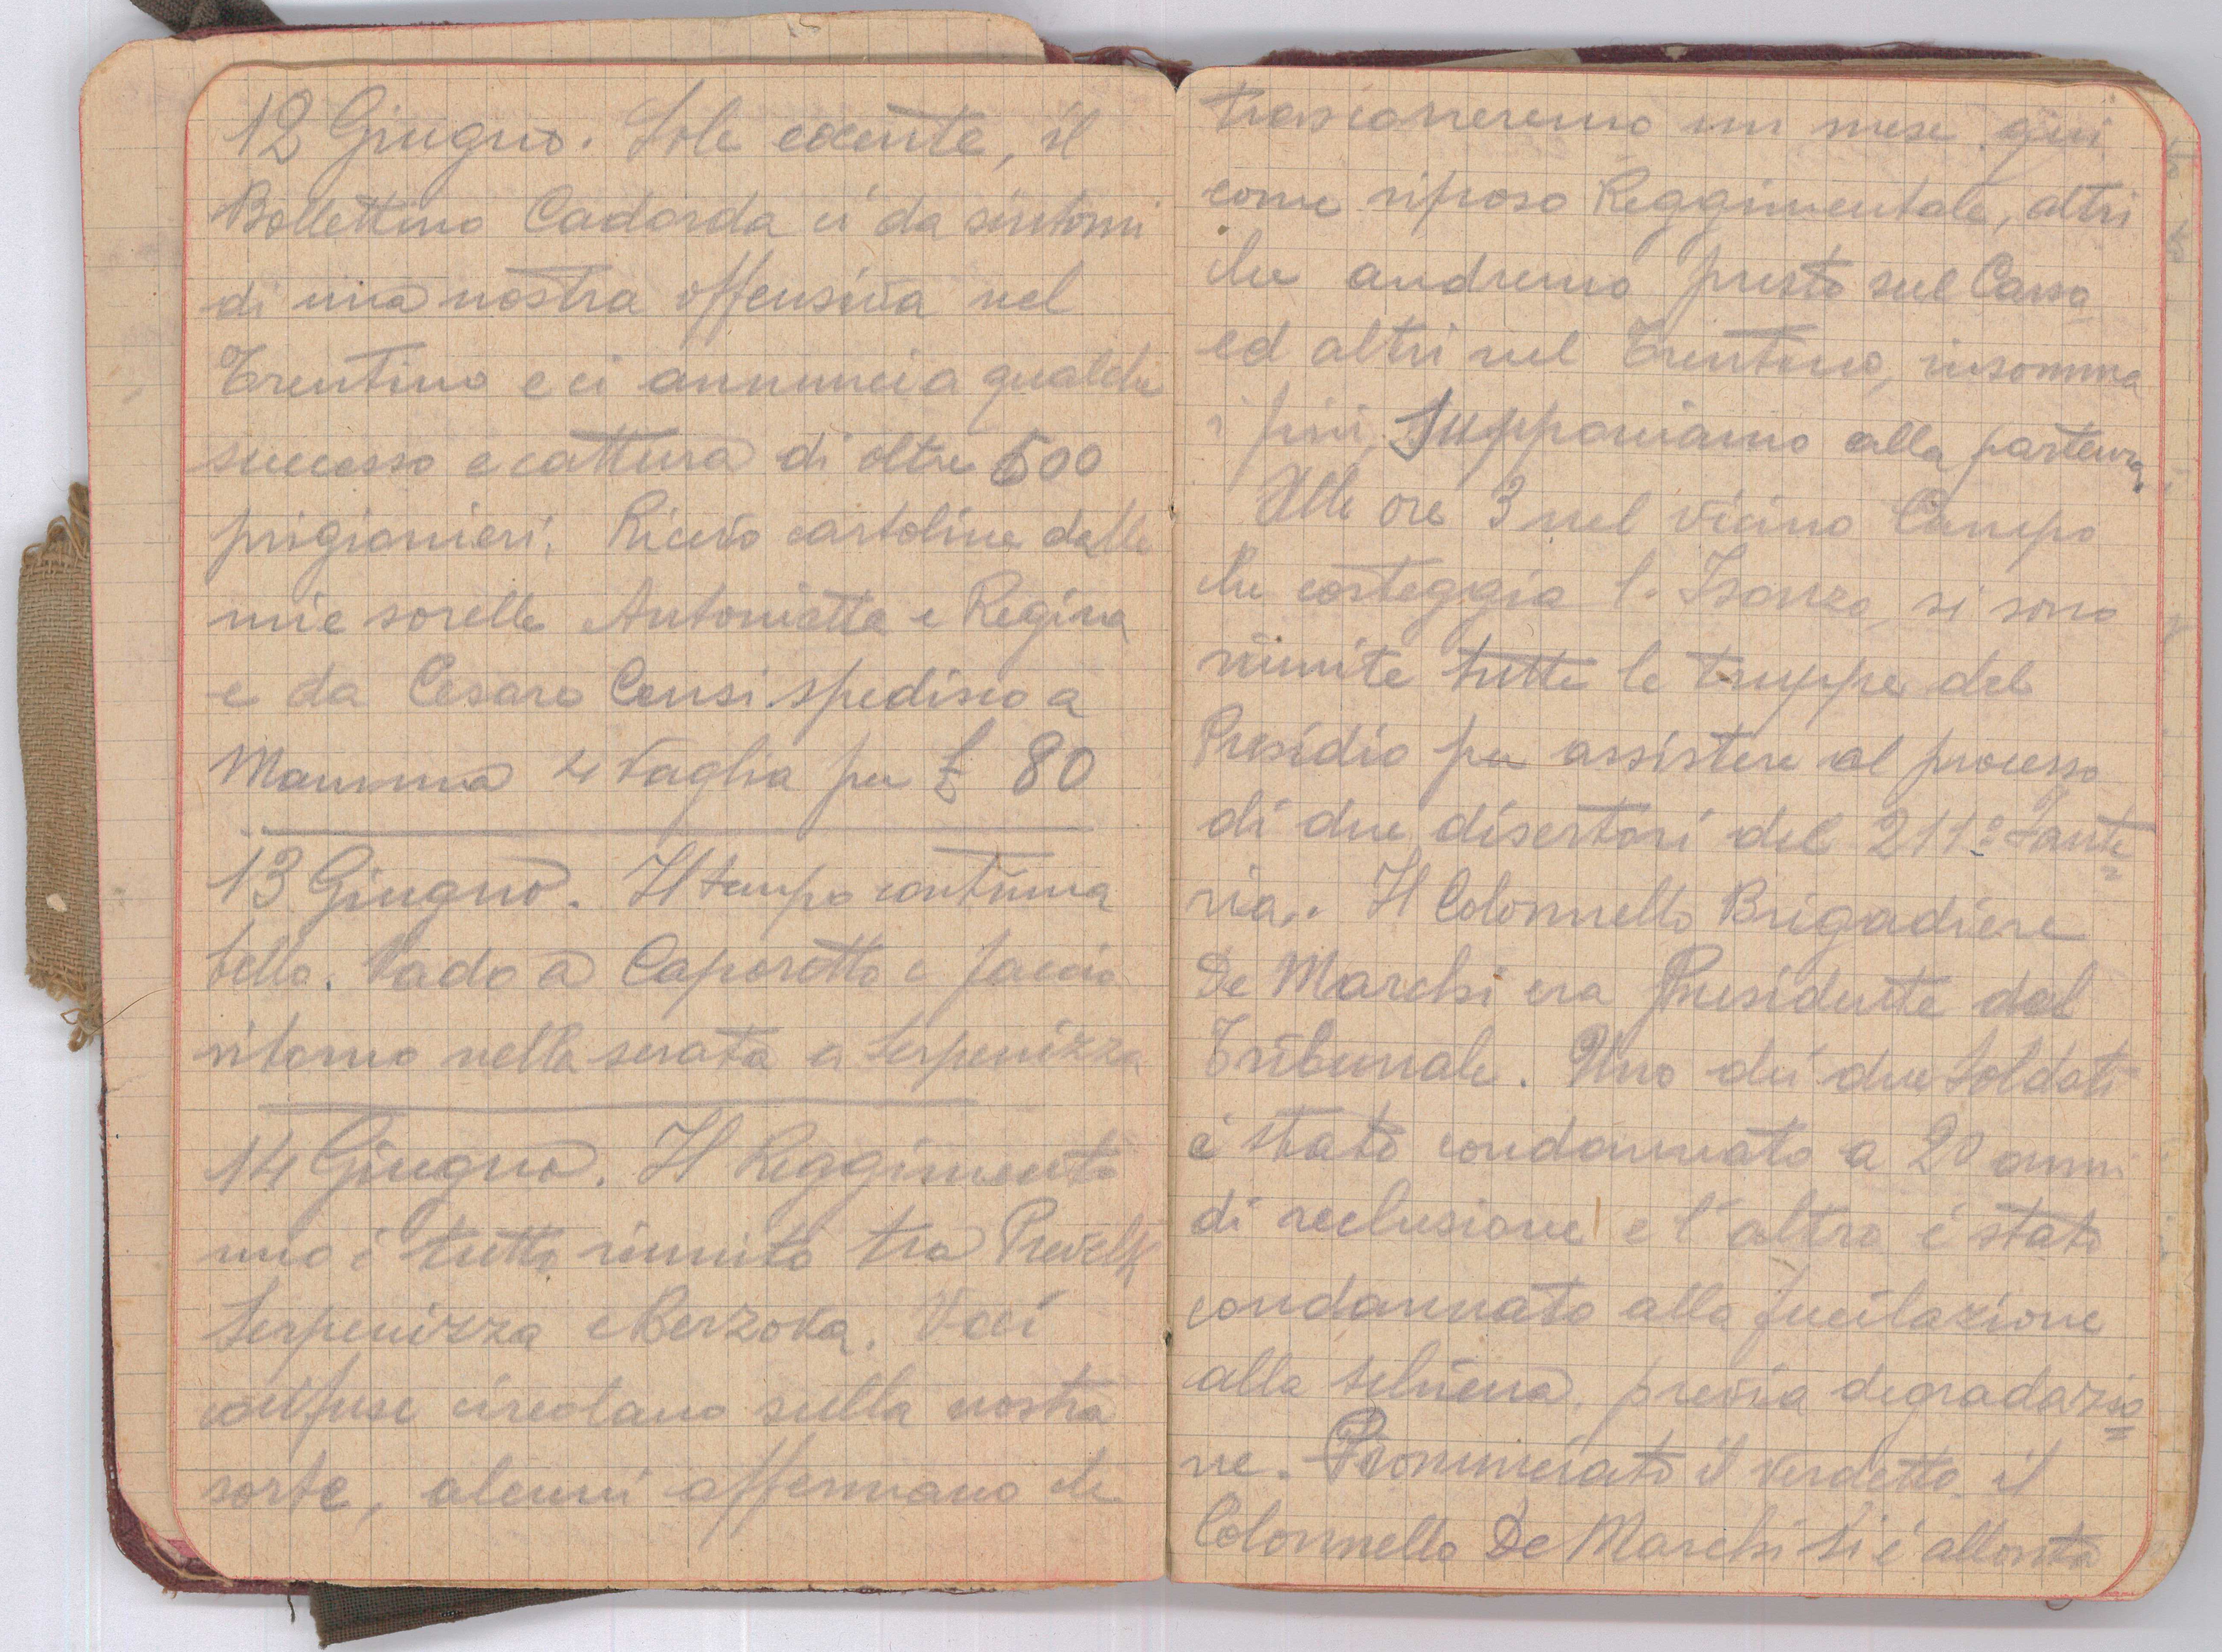 12 Giugno. Sole cocente, il
Bollettino Cadorda ci da sintomi
di una nostra offensiva nel
Trentino e ci annuncia qualche
successo e cattura di oltre 500
prigionieri. Ricevo cartoline dalle
mie sorelle Antonietta e Regina
e da Cesare Censi spedisco a
Mamma 4 Vaglia per £ 80
13 Giugno. Il tempo continua
bello. Vado a Caporetto e faccio
ritorno nella serata a Serpenizza
14 Giugno. Il Reggimento
mio è tutto riunito tra
Serpenizza e Berzova. Voci
confuse circolano sulla nostra
sorte, alcuni affermano che
trascorreremo un mese qui
come riposo Reggimentale, altri
che andremo presto sul Carso
ed altri nel Trentino, insomma
i più supponiamo alla partenza.
Alle ore 3 nel vicino Campo
che costeggia l'Isonzo, si sono
riunite tutte le truppe del
Presidio per assistere al processo
di due disertori del 211º Fante
ria. Il Colonnello Brigadiere
De Marchi era Presidente del
Tribunale. Uno dei due Soldati
é stato condannato a 20 anni
di reclusione e l'altro é stato
condannato alla fucilazione
alla schiena, previa degradazio=
ne. Pronunciato il verdetto il
Colonnello De Marchi si é allonta